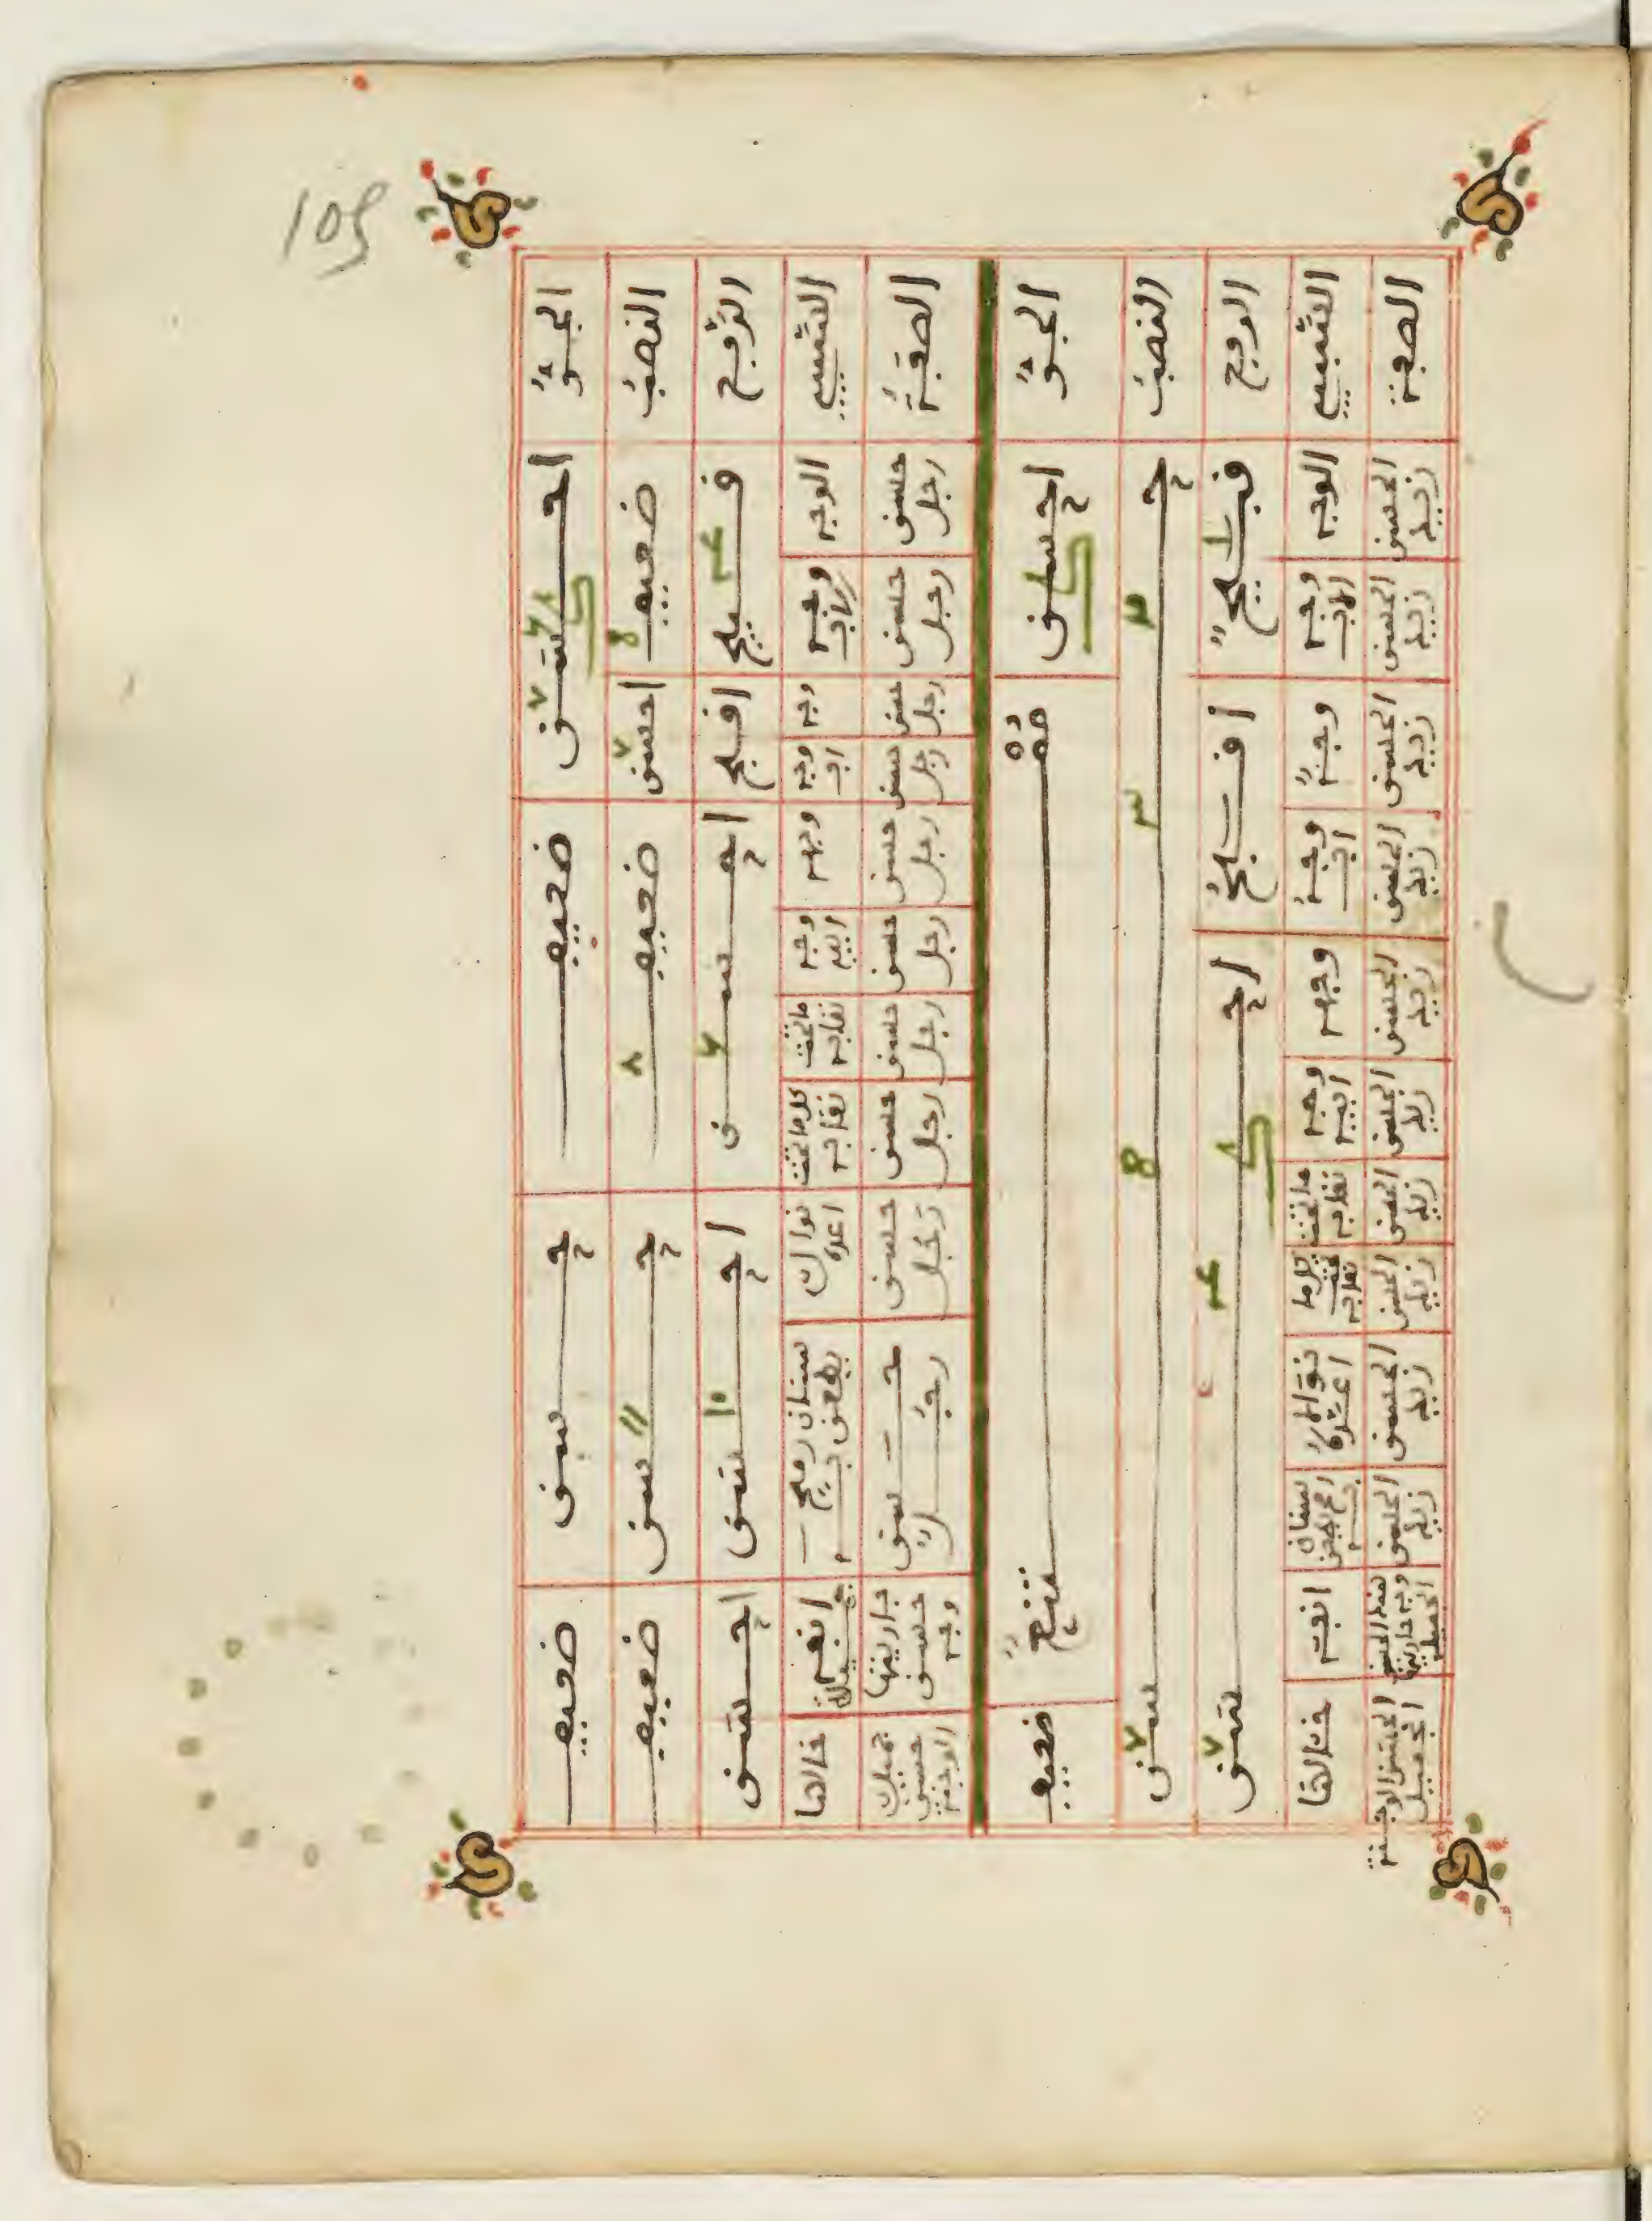 الجر احسن ضعيف حسن ضعيف
النصب ضعيف احسن ضعيف حسن ضعيف
الرفع قبيح اقبح احسن احسن احسن
السببي الوجه وجه الاب وجه وجه اب وجهه وجه ابيه ما تحت نقابه كل ما تحت نقابه نوال اعده سنان رمح يطعن به انفه خالها
الصفة حسن رجل حسن رجل حسن رجل حسن رجل حسن رجل حسن رجل حسن رجل حسن رجل حسن رجل حسن رجل جاريتها حسن وجه جميلة حسن الوجنة
الجر احسن ممتنع ضعيف
النصب حسن
الرفع قبيح اقبح احسن
السببي الوجه وجه الاب وجه وجه اب وجهه وجه ابيه ما تحت نقابه كل ما تحت نقابه نوالا اعده سنان رمح يطعن به انفه خالها
الصفة الحسن زيد الحسن زيد الحسن زيد الحسن زيد الحسن زيد الحسن زيد الحسن زيد الحسن زيد الحسن زيد الحسن زيد الحسن وجه جاريتها الجميلة الحسن الوجنة الجميل
105